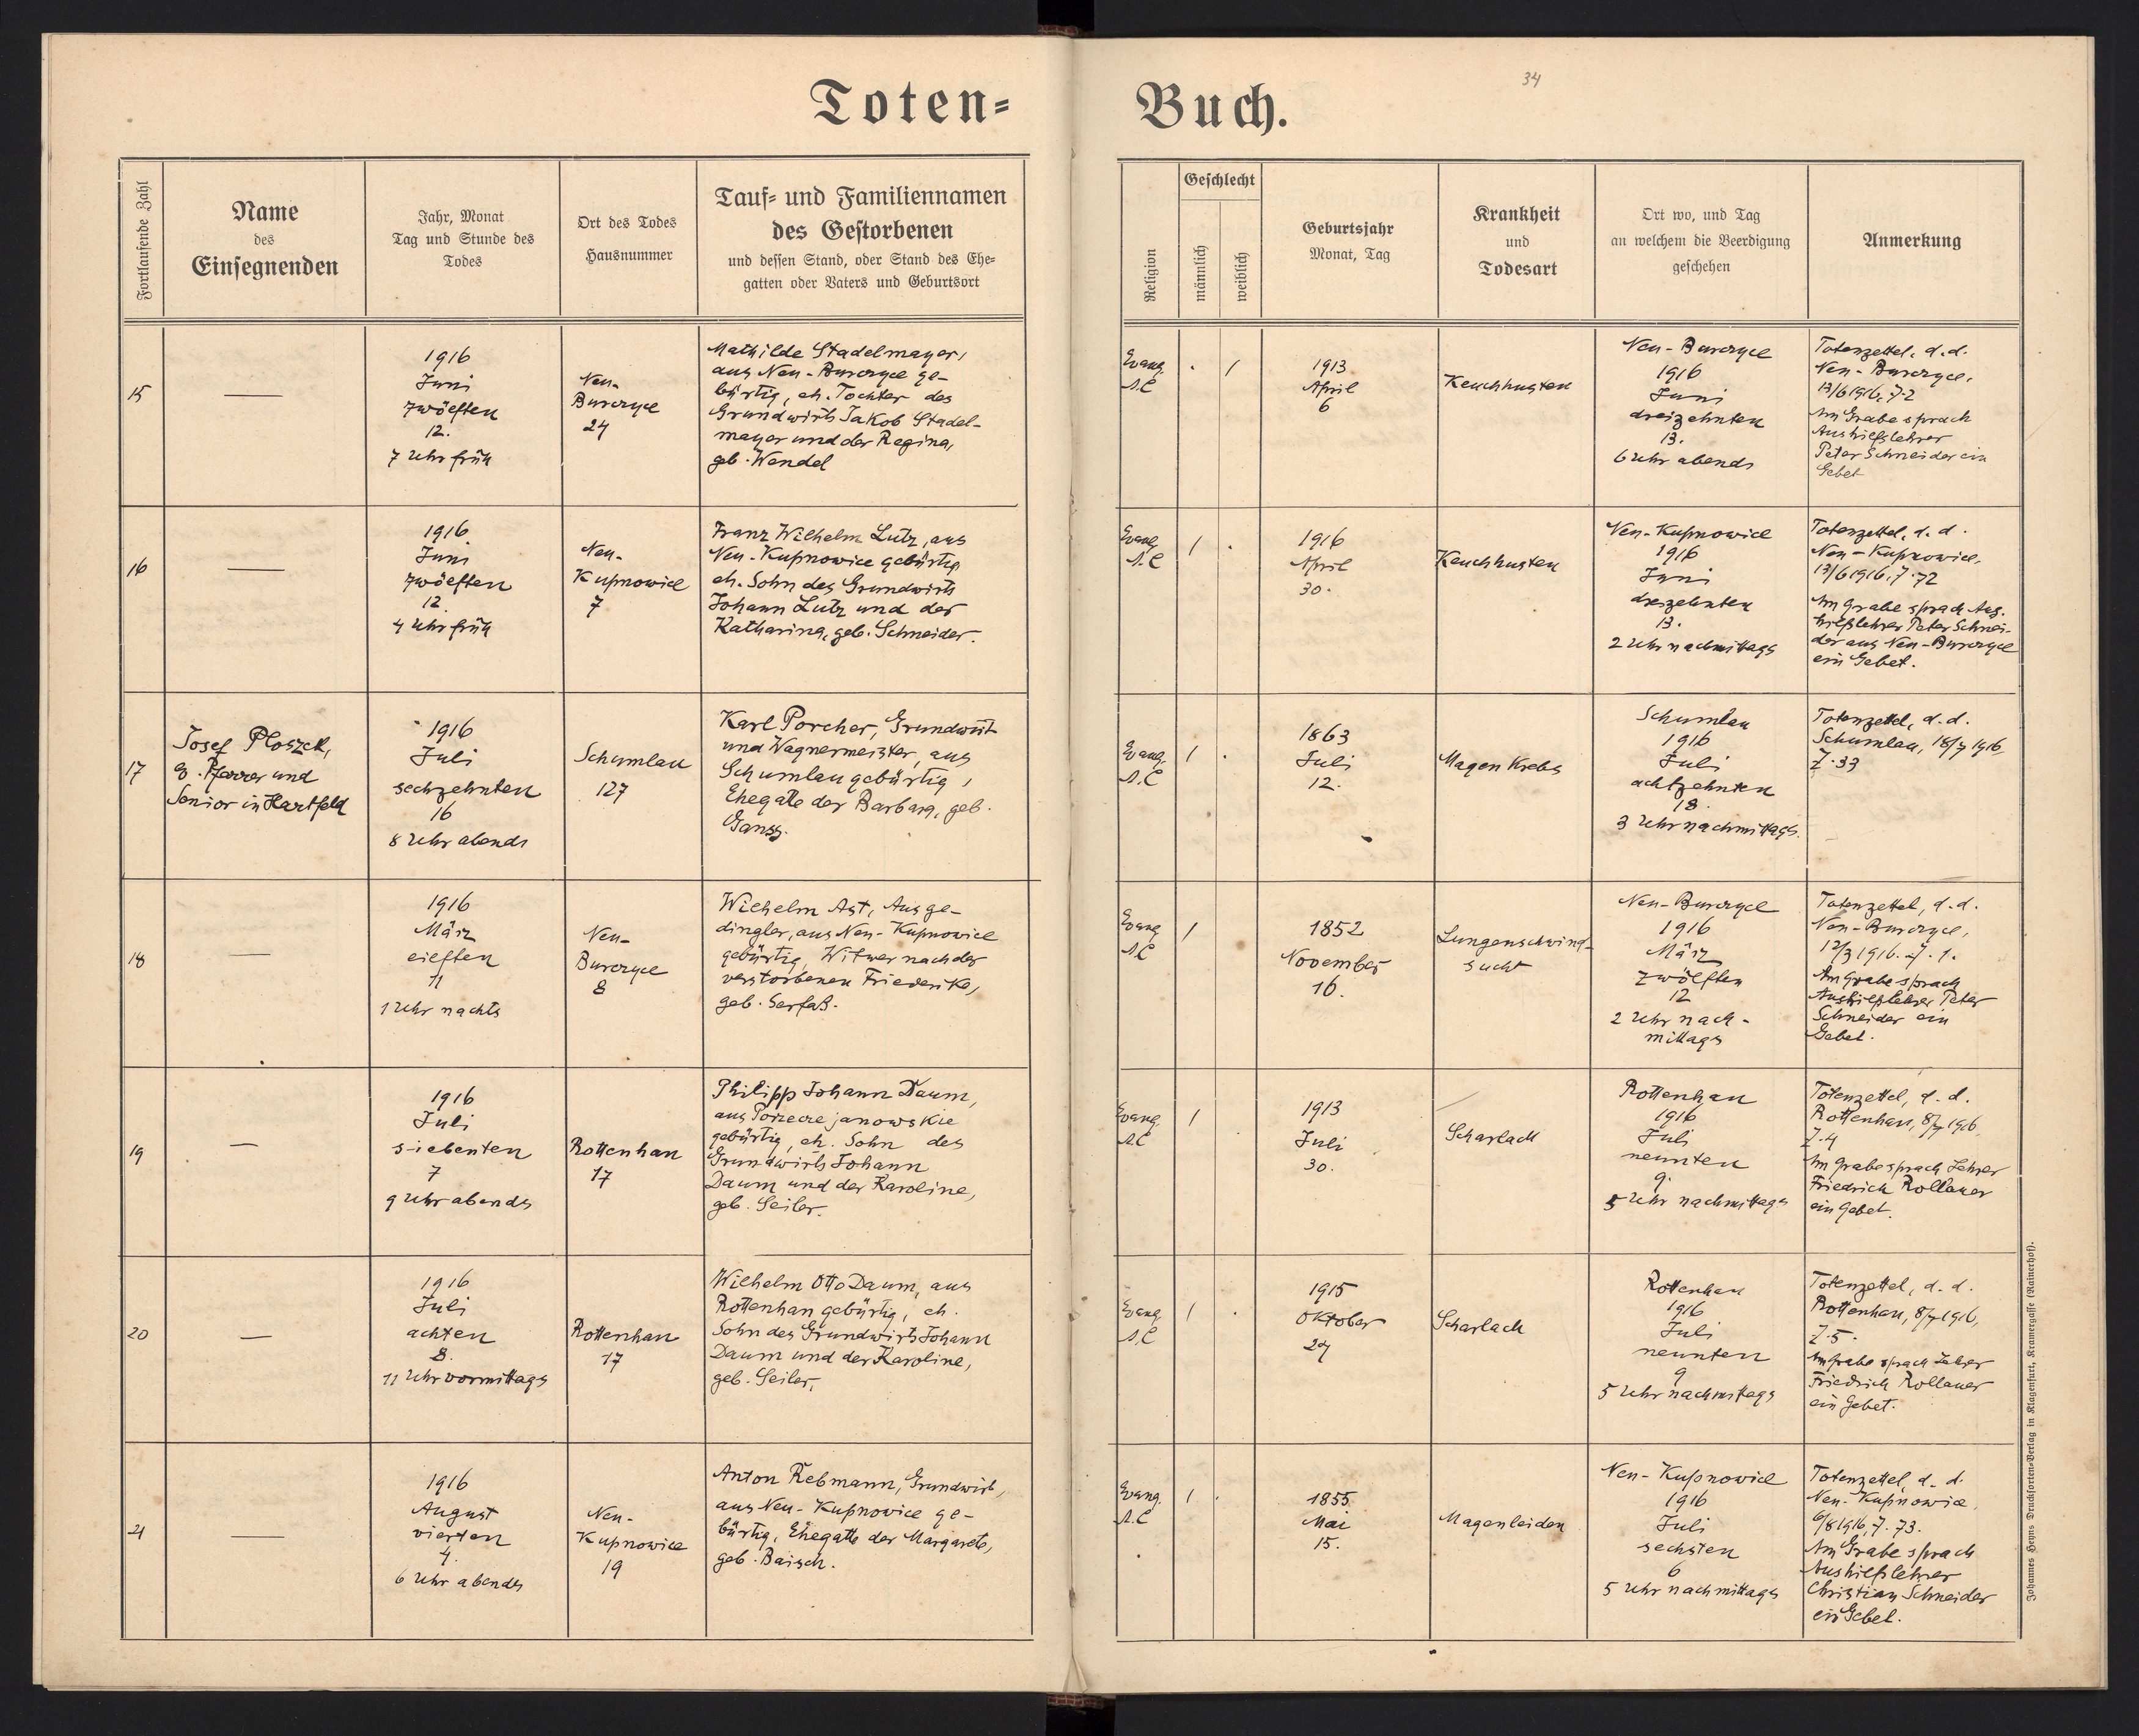 Toten-
Buch.
34
Fortlaufende Zahl
Name
des
Einsegnenden
Jahr, Monat
Tag und Stunde des
Todes
Ort des Todes
Hausnummer
Tauf- und Familiennamen
des Gestorbenen
und dessen Stand, oder Stand des Ehe-
gatten oder Vaters und Geburtsort
Religion
Geschlecht
männlich
weiblich
Geburtsjahr
Monat, Tag
Krankheit
und
Todesart
Ort wo, und Tag
an welchem die Beerdigung
geschehen
Anmerkung
15
—
1916
Juni
zwölften
12.
7 Uhr früh
Neu-
Burczyce
24
Mathilde Stadelmayer,
aus Neu-Burczyce ge-
bürtig, eh. Tochter des
Grundwirts Jakob Stadel-
mayer und der Regina,
geb. Wendel
Evang.
A.C
. /
1913
April
6
Keuchhusten
Neu-Burczyce
1916
Juni
dreizehnten
13.
6 Uhr abends
Totenzettel, d.d.
Neu-Burczyce,
13/6 1916, Z.2
Am Grabe sprach
Aushilfslehrer
Peter Schneider ein
Gebet
16
—
1916
Juni
zwölften
12.
4 Uhr früh
Neu-
Kupnowice
7
Franz Wilhelm Lutz, aus
Neu-Kupnowice gebürtig
eh. Sohn des Grundwirts
Johann Lutz und der
Katharina, geb. Schneider.
Evang.
A.C
/ .
1916
April
30.
Keuchhusten
Neu-Kupnowice
1916
Juni
dreizehnten
13.
2 Uhr nachmittags
Totenzettel, d.d.
Neu-Kupnowice,
13/6 1916, Z.72
Am Grabe sprach Aus-
hilfslehrer Peter Schnei-
der aus Neu-Burczyce
ein Gebet.
17
Josef Ploszek,
ev. Pfarrer und
Senior in Hartfeld
1916
Juli
sechzehnten
16
8 Uhr abends
Schumlau
127
Karl Porcher, Grundwirt
und Wagnermeister, aus
Schumlau gebürtig,
Ehegatte der Barbara, geb.
Ganss.
Evang.
A.C
/ .
1863
Juli
12.
Magen Krebs
Schumlau
1916
Juli
achtzehnten
18.
3 Uhr nachmittags.
Totenzettel, d.d.
Schumlau, 18/7 1916
Z.33
18
—
1916
März
elften
11
1 Uhr nachts
Neu-
Burczyce
8
Wilhelm Ast, Ausge-
dingler, aus Neu-Kupnowice
gebürtig, Witwer nach der
verstorbenen Friederike,
geb. Serfaß.
Evang
A.C
/
1852
November
16.
Lungenschwind-
sucht
Neu-Burczyce
1916
März
zwölften
12
2 Uhr nach-
mittags
Totenzettel, d.d.
Neu-Burczyce,
12/3 1916. Z. 1.
Am Grabe sprach
Aushilfslehrer Peter
Schneider ein
Gebet.
19
—
1916
Juli
siebenten
7
9 Uhr abends
Rottenhan
17
Philipp Johann Daum,
aus Porzecze janowskie
gebürtig, eh. Sohn des
Grundwirts Johann
Daum und der Karoline,
geb. Seiler.
Evang.
A.C
/ .
1913
Juli
30.
Scharlach
Rottenhan
1916
Juli
neunten
9.
5 Uhr nachmittags
Totenzettel, d.d.
Rottenhan, 8/7 1916,
Z.4
Am Grabe sprach Lehrer
Friedrich Rollauer
ein Gebet.
20
—
1916
Juli
achten
8.
11 Uhr vormittags
Rottenhan
17
Wilhelm Otto Daum, aus
Rottenhan gebürtig, eh.
Sohn des Grundwirts Johann
Daum und der Karoline,
geb. Seiler.
Evang
A.C
/ .
1915
Oktober
27
Scharlach
Rottenhan
1916
Juli
neunten
9
5 Uhr nachmittags
Totenzettel, d.d.
Rottenhan, 8/7 1916,
Z.5.
Am Grabe sprach Lehrer
Friedrich Rollauer
ein Gebet.
21
—
1916
August
vierten
4.
6 Uhr abends
Neu-
Kupnowice
19
Anton Rebmann, Grundwirt,
aus Neu-Kupnowice ge-
bürtig, Ehegatte der Margarete,
geb. Baisch.
Evang.
A.C
/ .
1855
Mai
15.
Magenleiden
Neu-Kupnowice
1916
Juli
sechsten
6
5 Uhr nachmittags
Totenzettel, d.d.
Neu-Kupnowice,
6/8 1916, Z. 73.
Am Grabe sprach
Aushilfslehrer
Christian Schneider
ein Gebet.
Johannes Heyns Drucksorten-Verlag in Klagenfurt, Kramergasse (Rainerhof).